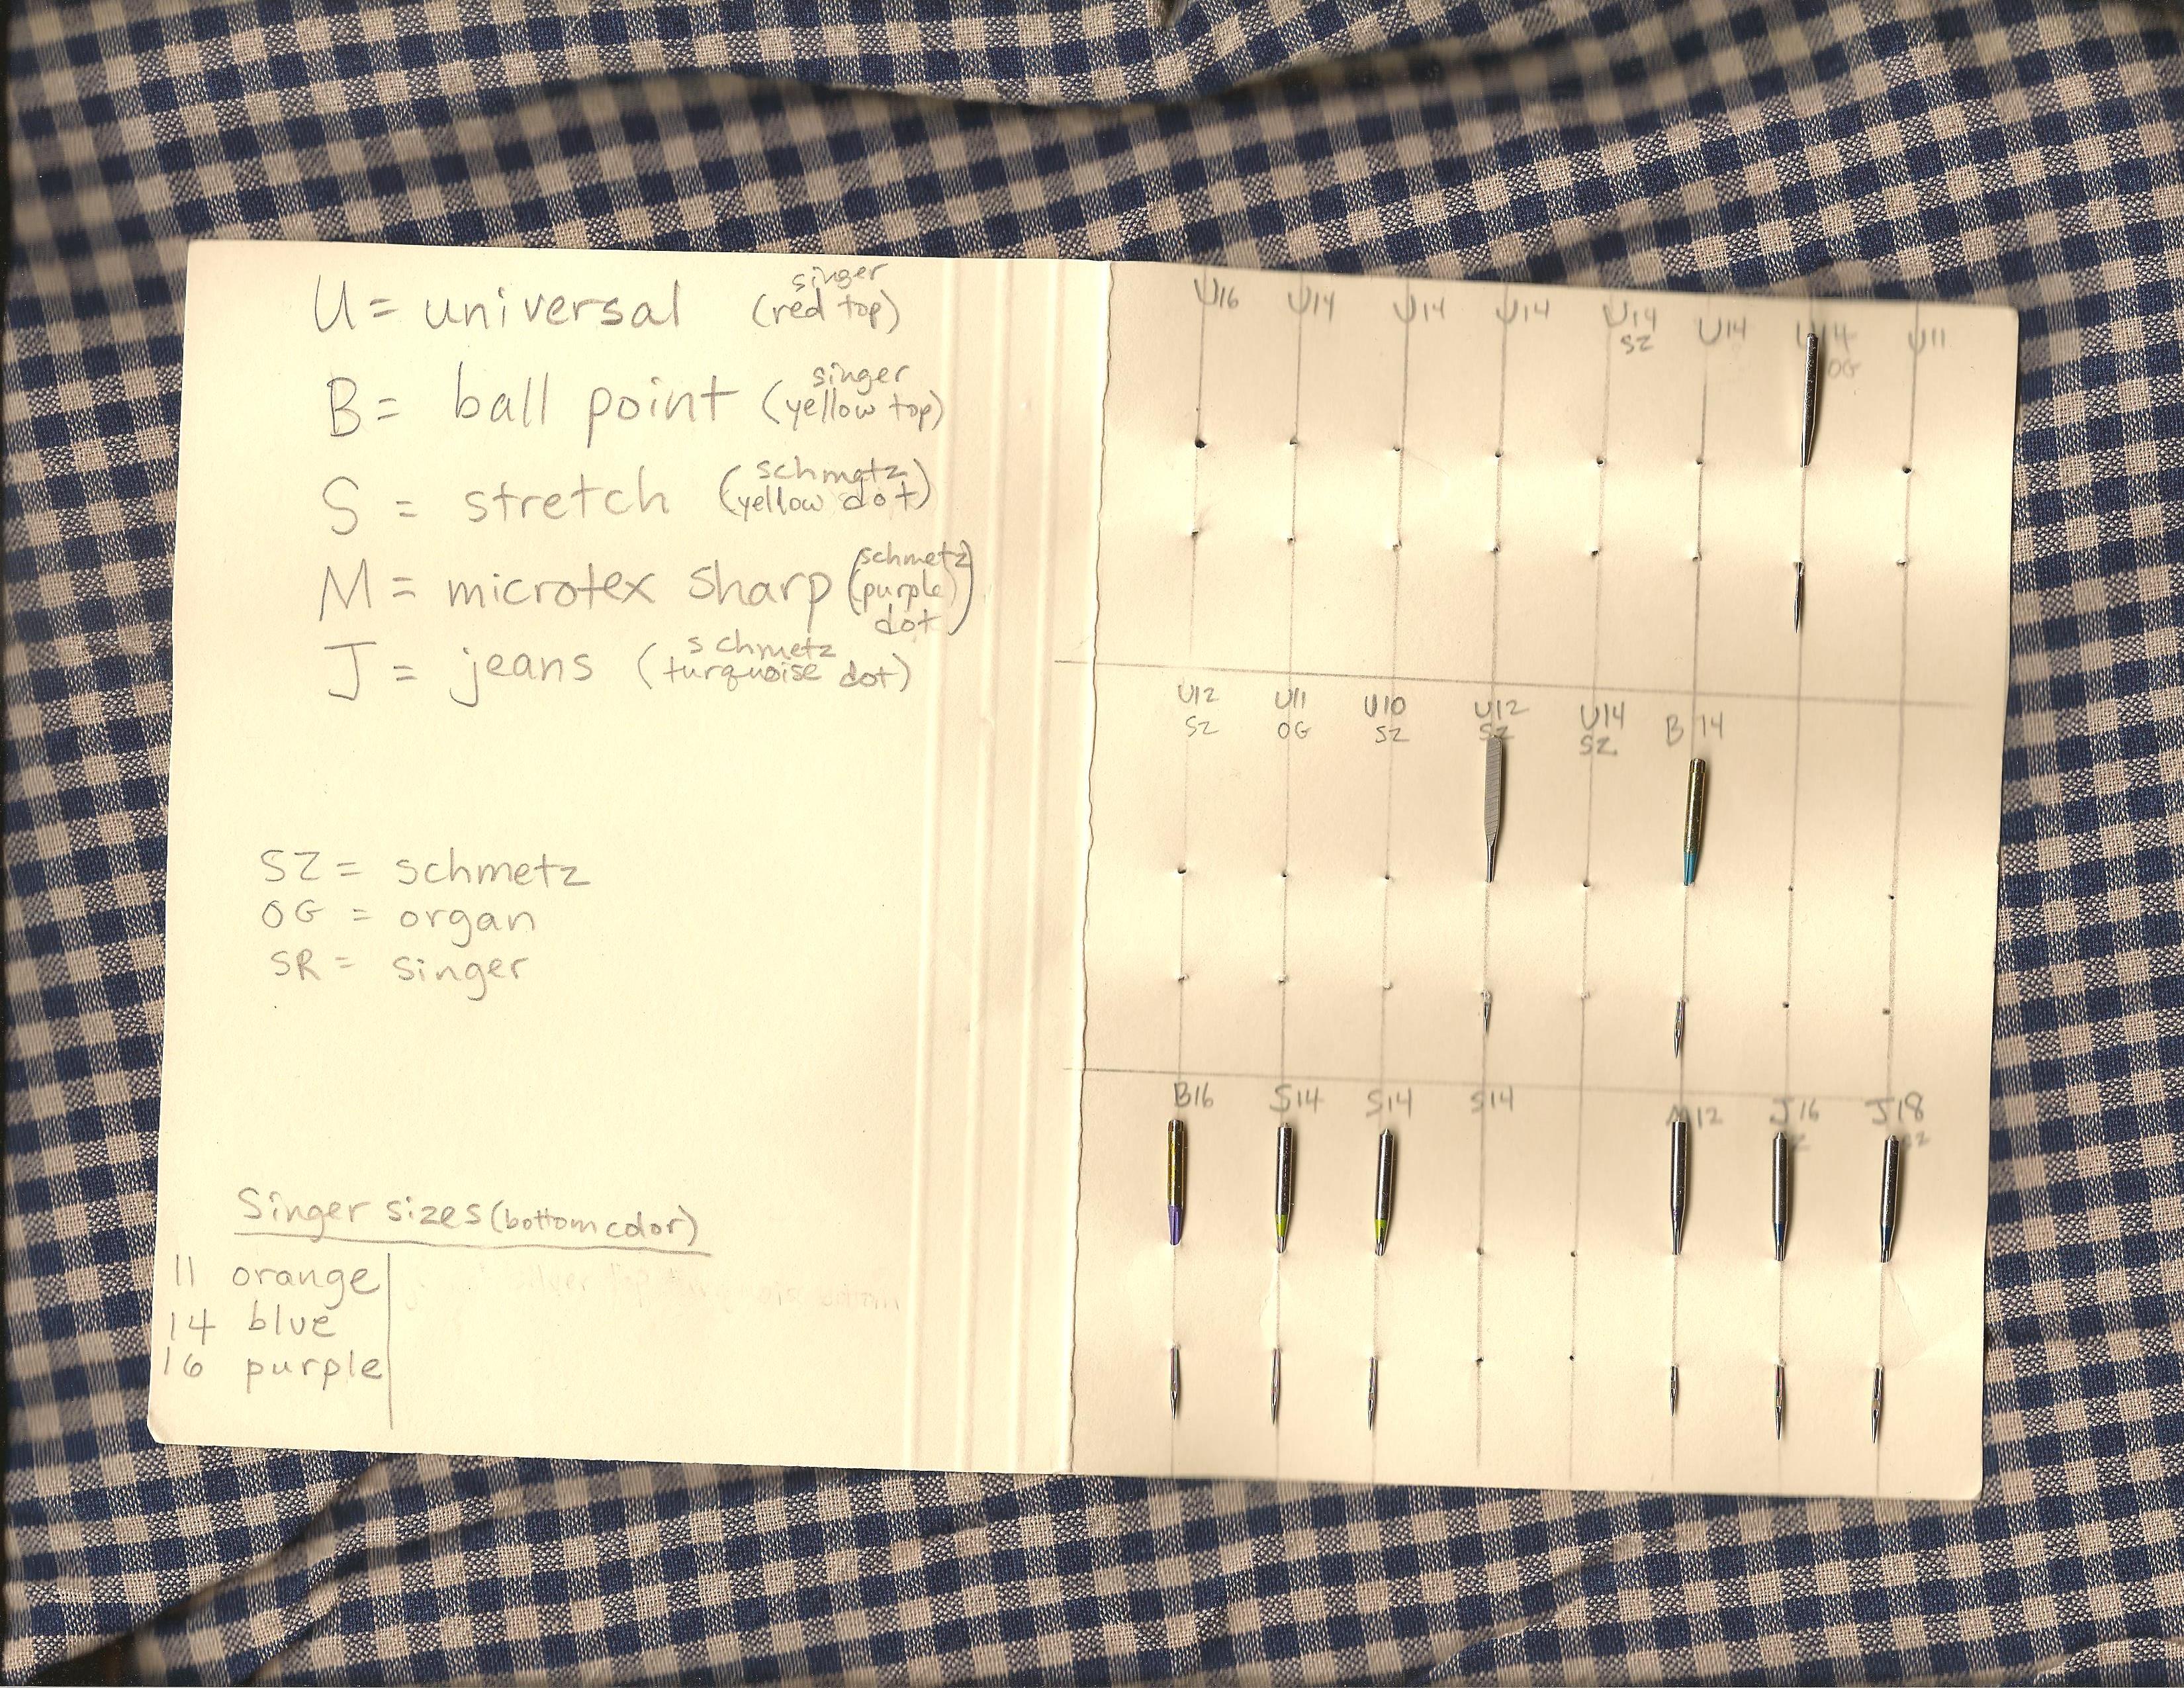 singer
U = universal (red top)
singer
B = ball point (yellow top)
schmetz
S = stretch (yellow dot)
M = microtex sharp (schmetz
purple
dot)
schmetz
J = jeans (turquoise dot)
SZ = schmetz
OG = organ
SR = singer
Singer sizes (bottom color)
11 orange
14 blue
16 purple
U16 U14 U14 U14 U14 U14 U14 U11
SZ OG
U12 U11 U10 U12 U14 B14
SZ OG SZ SZ SZ
B16 S14 S14 S14 M12 J16 J18
SZ